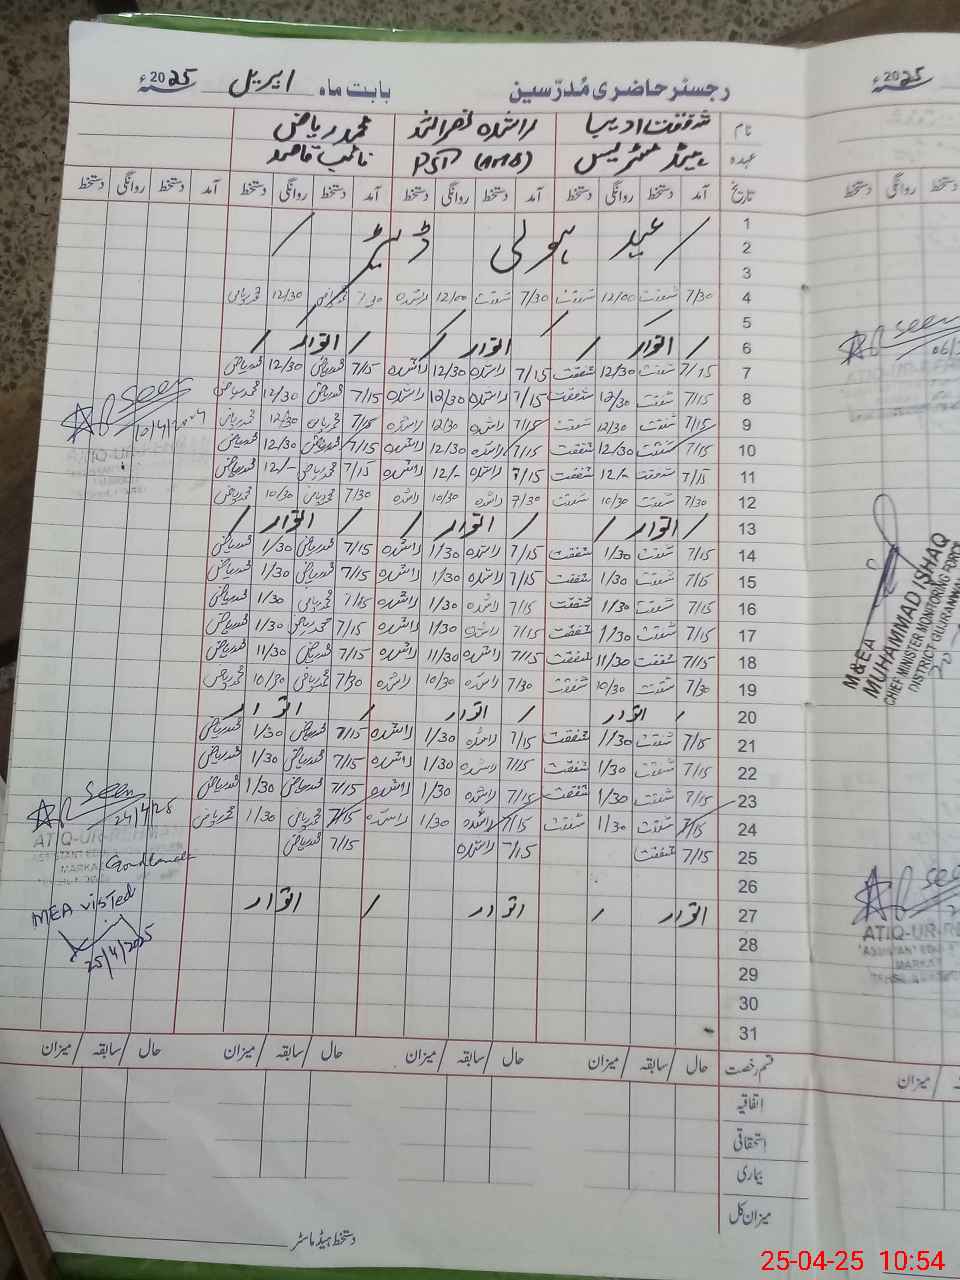 رجسٹر حاضری مُدرّسین بابت ماہ اپریل 2025ء
نام شفقت ادیبا راشدہ محمد ریاض
عہدہ ہیڈ مسٹریس PST (AMB) نائب قاصد
تاریخ آمد دستخط روانگی دستخط آمد دستخط روانگی دستخط آمد دستخط روانگی دستخط آمد دستخط روانگی دستخط
1
2 عید ہولی ڈیز
3
4 7/30 شفقت 12/00 شفقت 7/30 شفقت 12/00 راشدہ 7/30 محمد ریاض 12/30 محمد ریاض
5
6 اتوار اتوار اتوار
7 7/15 شفقت 12/30 شفقت 7/15 راشدہ 12/30 راشدہ 7/15 محمد ریاض 12/30 محمد ریاض
8 7/15 شفقت 12/30 شفقت 7/15 راشدہ 12/30 راشدہ 7/15 محمد ریاض 12/30 محمد ریاض
9 7/15 شفقت 12/30 شفقت 7/15 راشدہ 12/30 راشدہ 7/15 محمد ریاض 12/30 محمد ریاض
10 7/15 شفقت 12/30 شفقت 7/15 راشدہ 12/30 راشدہ 7/15 محمد ریاض 12/30 محمد ریاض
11 7/15 شفقت 12/- شفقت 7/15 راشدہ 12/- راشدہ 7/15 محمد ریاض 12/- محمد ریاض
12 7/30 شفقت 10/30 شفقت 7/30 راشدہ 10/30 راشدہ 7/30 محمد ریاض 10/30 محمد ریاض
13 اتوار اتوار اتوار
14 7/15 شفقت 1/30 شفقت 7/15 راشدہ 1/30 راشدہ 7/15 محمد ریاض 1/30 محمد ریاض
15 7/15 شفقت 1/30 شفقت 7/15 راشدہ 1/30 راشدہ 7/15 محمد ریاض 1/30 محمد ریاض
16 7/15 شفقت 1/30 شفقت 7/15 راشدہ 1/30 راشدہ 7/15 محمد ریاض 1/30 محمد ریاض
17 7/15 شفقت 1/30 شفقت 7/15 راشدہ 1/30 راشدہ 7/15 محمد ریاض 1/30 محمد ریاض
18 7/15 شفقت 11/30 شفقت 7/15 راشدہ 11/30 راشدہ 7/15 محمد ریاض 11/30 محمد ریاض
19 7/30 شفقت 10/30 شفقت 7/30 راشدہ 10/30 راشدہ 7/30 محمد ریاض 10/30 محمد ریاض
20 اتوار اتوار اتوار
21 7/15 شفقت 1/30 شفقت 7/15 راشدہ 1/30 راشدہ 7/15 محمد ریاض 1/30 محمد ریاض
22 7/15 شفقت 1/30 شفقت 7/15 راشدہ 1/30 راشدہ 7/15 محمد ریاض 1/30 محمد ریاض
23 7/15 شفقت 1/30 شفقت 7/15 راشدہ 1/30 راشدہ 7/15 محمد ریاض 1/30 محمد ریاض
24 7/15 شفقت 1/30 شفقت 7/15 راشدہ 1/30 راشدہ 7/15 محمد ریاض 1/30 محمد ریاض
25 7/15 شفقت 7/15 راشدہ 7/15 محمد ریاض
26
27 اتوار اتوار اتوار
28
29
30
31
قسم رخصت حال / سابقہ / میزان حال / سابقہ / میزان حال / سابقہ / میزان حال / سابقہ / میزان
اتفاقیہ
استحقاقی
بیماری
میزان کل
دستخط ہیڈ ماسٹر
Seen
Seen
24/4/25
ATIQ-UR-REHMAN
MARKAZ
MEA visited
25/4/2025
2025ء
روانگی دستخط
Seen
M&EA
MUHAMMAD ISHAQ
CHIEF MINISTER MONITORING FORCE
DISTRICT GUJRANWALA
See
ATIQ-UR-RE
MARKA
میزان
25-04-25 10:54